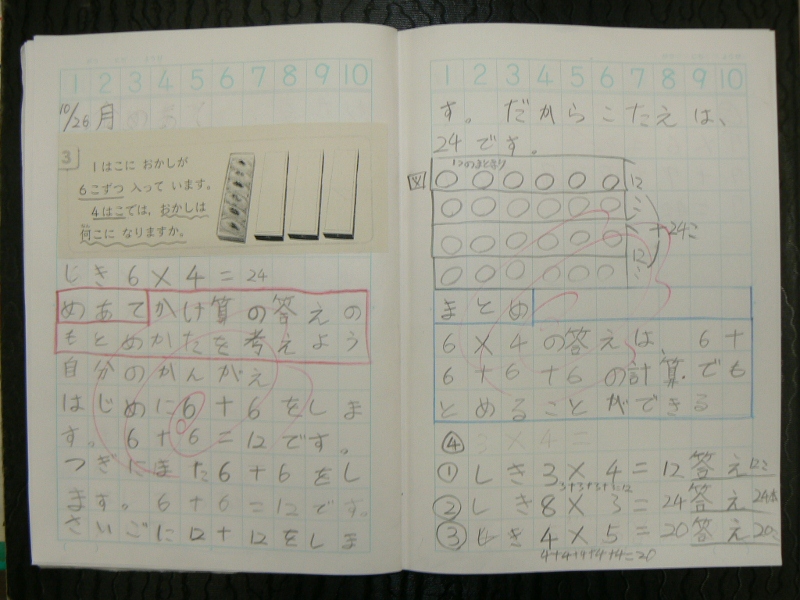 1 2 3 4 5 6 7 8 9 10
10/26 月
3
1はこに おかしが
6こずつ 入って います。
4はこでは、おかしは
何こに なりますか。
しき 6×4=24
めあて かけ算の答えの
もとめかたを考えよう
自分のかんがえ
はじめに6+6をしま
す。6+6=12です。
つぎにまた6+6をし
ます。6+6=12です。
さいごに12+12をしま
1 2 3 4 5 6 7 8 9 10
す。だからこたえは、
24です。
12のまとまり
図
12
こ
こ
12
こ
24こ
まとめ
6×4の答えは、6+
6+6+6の計算でも
とめることができる
④ 3×4=
① しき 3×4=12 答え12こ
3+3+3+3=12
② しき 8×3=24 答え24本
③ しき 4×5=20 答え20こ
4+4+4+4+4=20